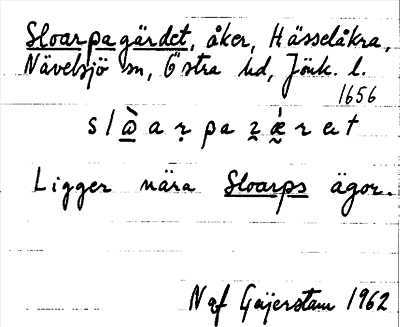 Sloarpagärdet, åker, Hässelåkra,
Nävelsjö sn, Östra hd, Jönk. l.
1656
Ligger nära Sloarps ägor.
N af Geijerstam 1962